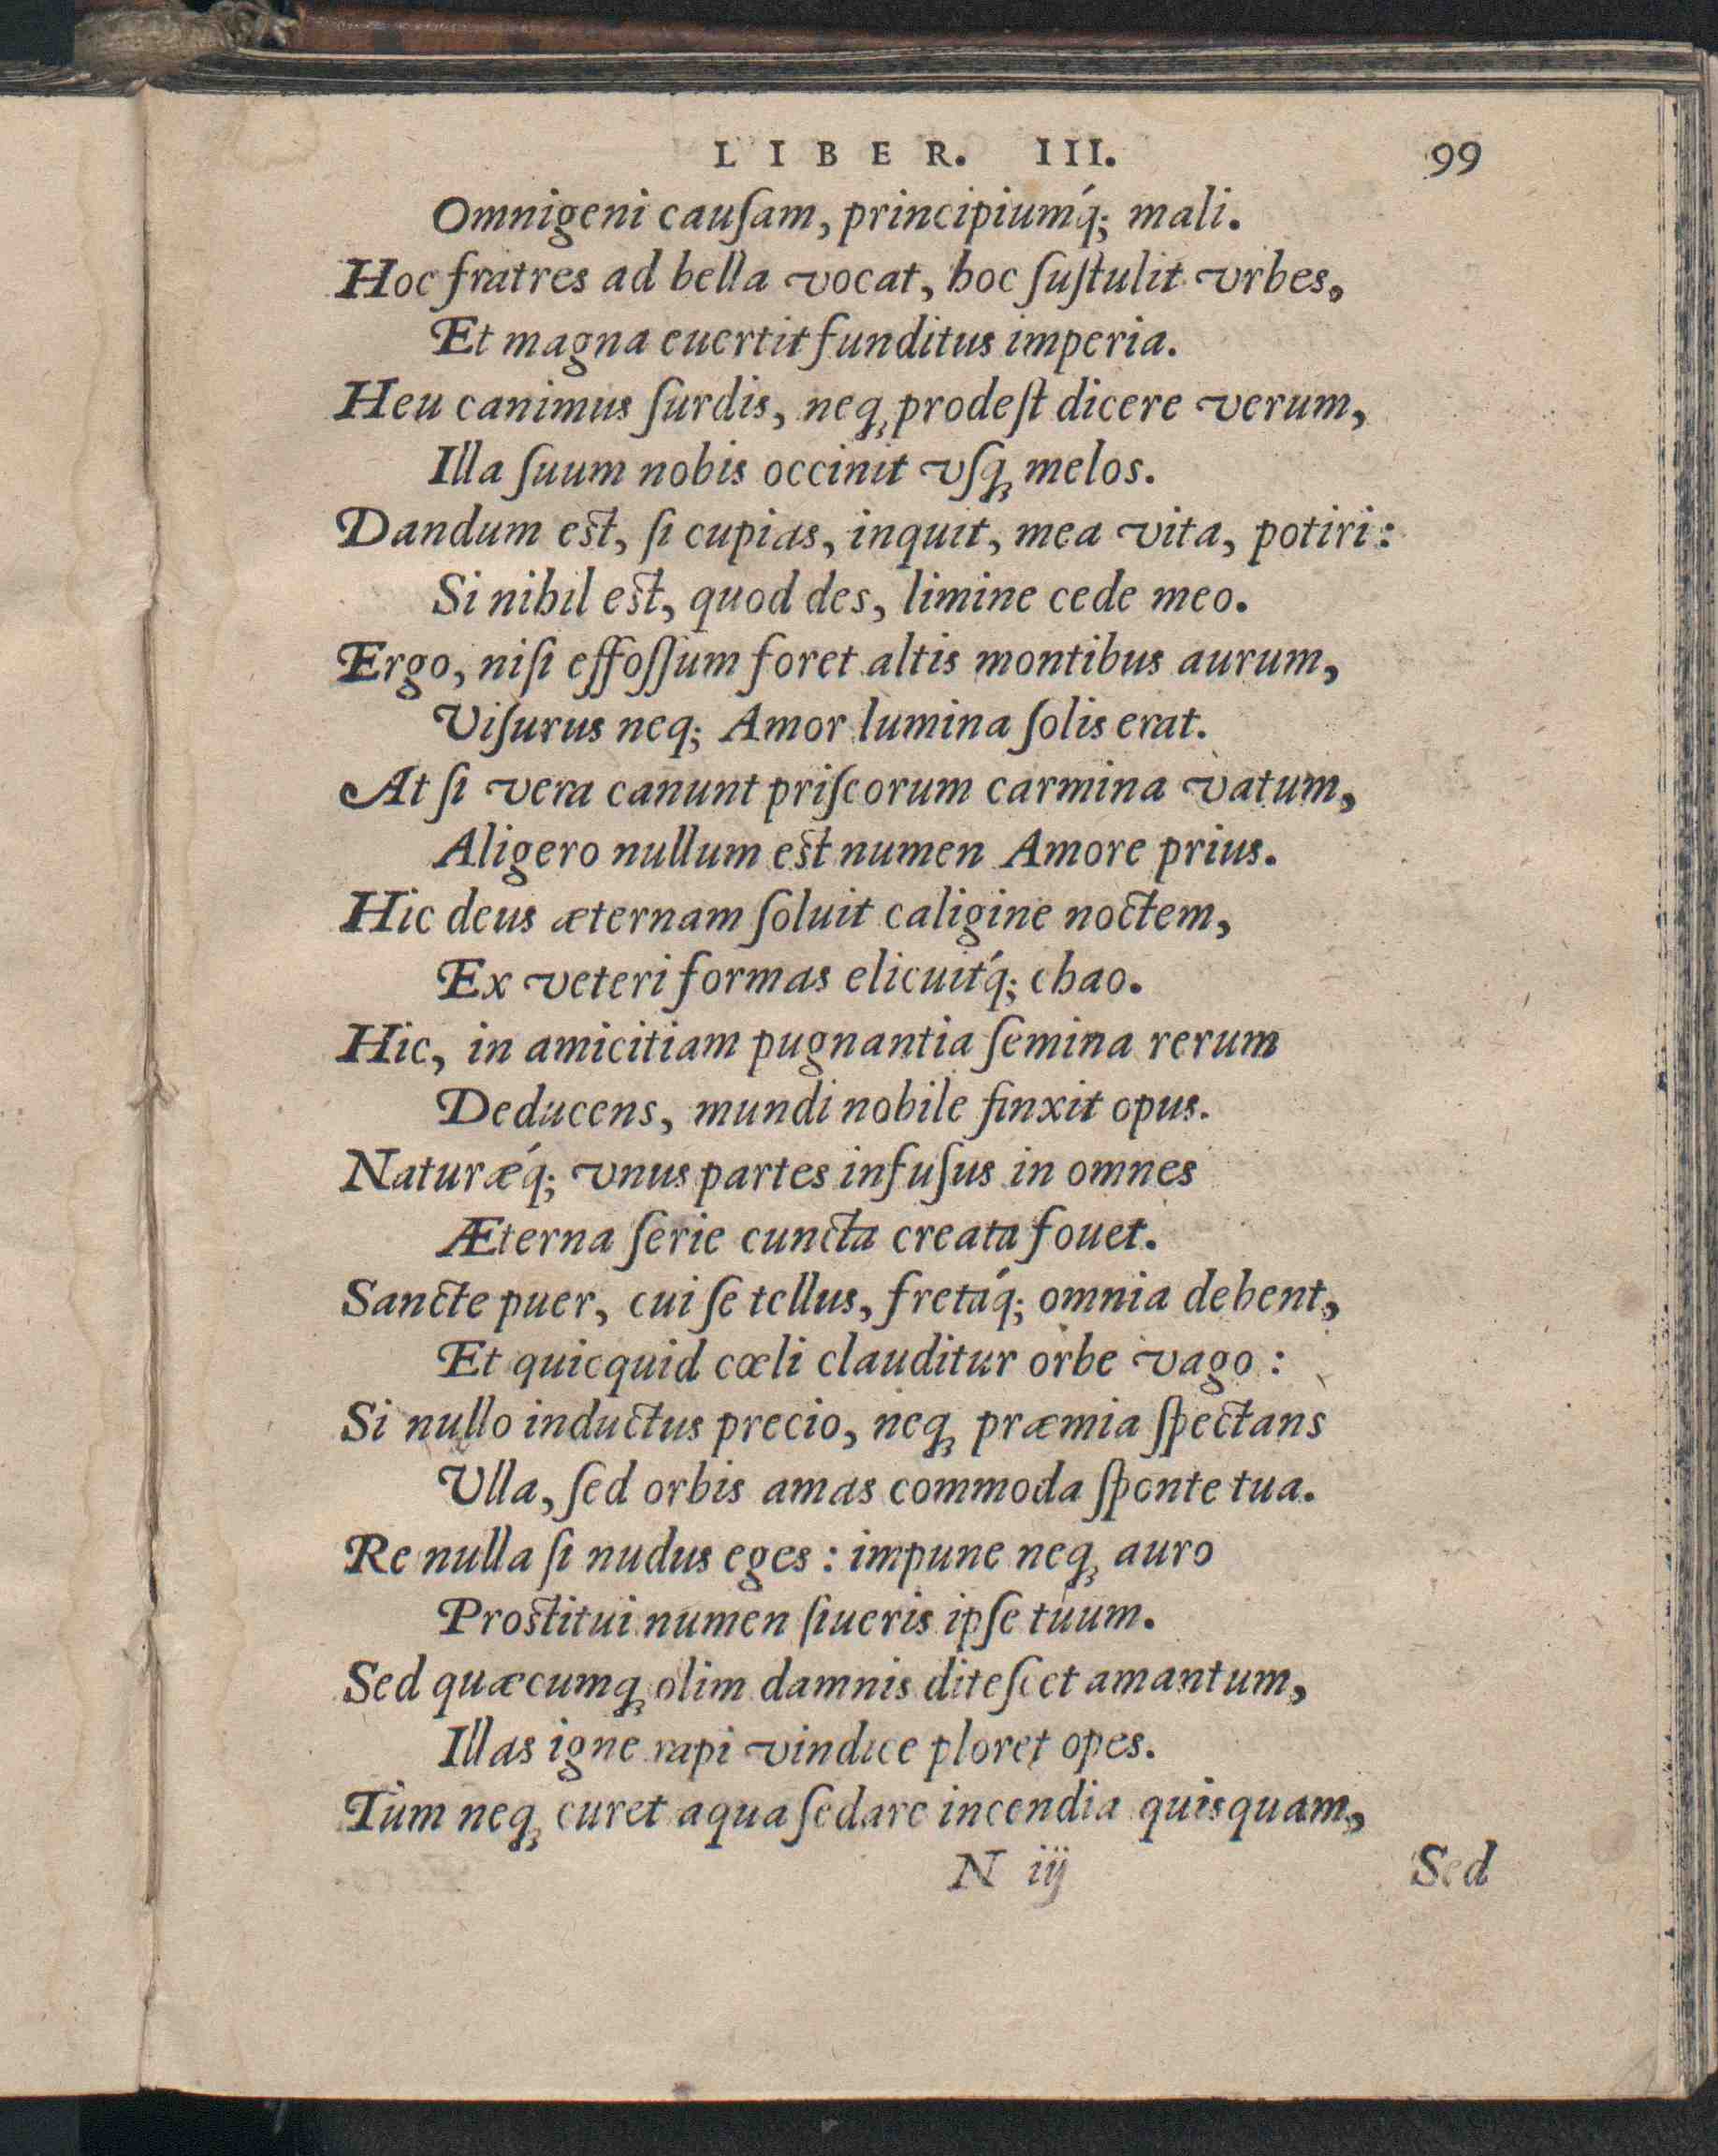 LIBER. III. 99
Omnigeni cauſam, principiumq́; mali.
Hoc fratres ad bella vocat, hoc ſuſtulit vrbes,
Et magna euertit funditus imperia.
Heu canimus ſurdis, neq; prodeſt dicere verum,
Illa ſuum nobis occinit vſq; melos.
Dandum est, ſi cupias, inquit, mea vita, potiri:
Si nihil est, quod des, limine cede meo.
Ergo, niſi effoſſum foret altis montibus aurum,
Viſurus neq; Amor lumina ſolis erat.
At ſi vera canunt priſcorum carmina vatum,
Aligero nullum est numen Amore prius.
Hic deus æternam ſoluit caligine noctem,
Ex veteri formas elicuitq́; chao.
Hic, in amicitiam pugnantia ſemina rerum
Deducens, mundi nobile finxit opus.
Naturæq́; vnus partes infuſus in omnes
Æterna ſerie cuncta creata fouet.
Sancte puer, cui ſe tellus, fretaq́; omnia debent,
Et quicquid cœli clauditur orbe vago:
Si nullo inductus precio, neq; præmia ſpectans
Ulla, ſed orbis amas commoda ſponte tua.
Re nulla ſi nudus eges: impune neq; auro
Prostitui numen ſiueris ipſe tuum.
Sed quæcumq; olim damnis diteſcet amantum,
Illas igne rapi vindice ploret opes.
Tum neq; curet aqua ſedare incendia quisquam,
N iij Sed